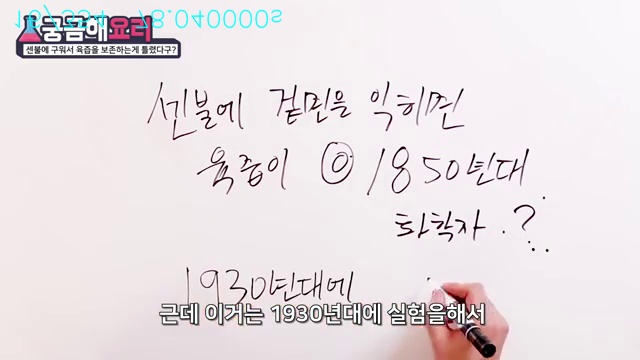 궁금해요리
센불에 구워서 육즙을 보존하는게 틀렸다구?
센불에 겉면을 익히면
육즙이 ◎ 1850년대
화학자.?
1930년대에
근데 이거는 1930년대에 실험을해서